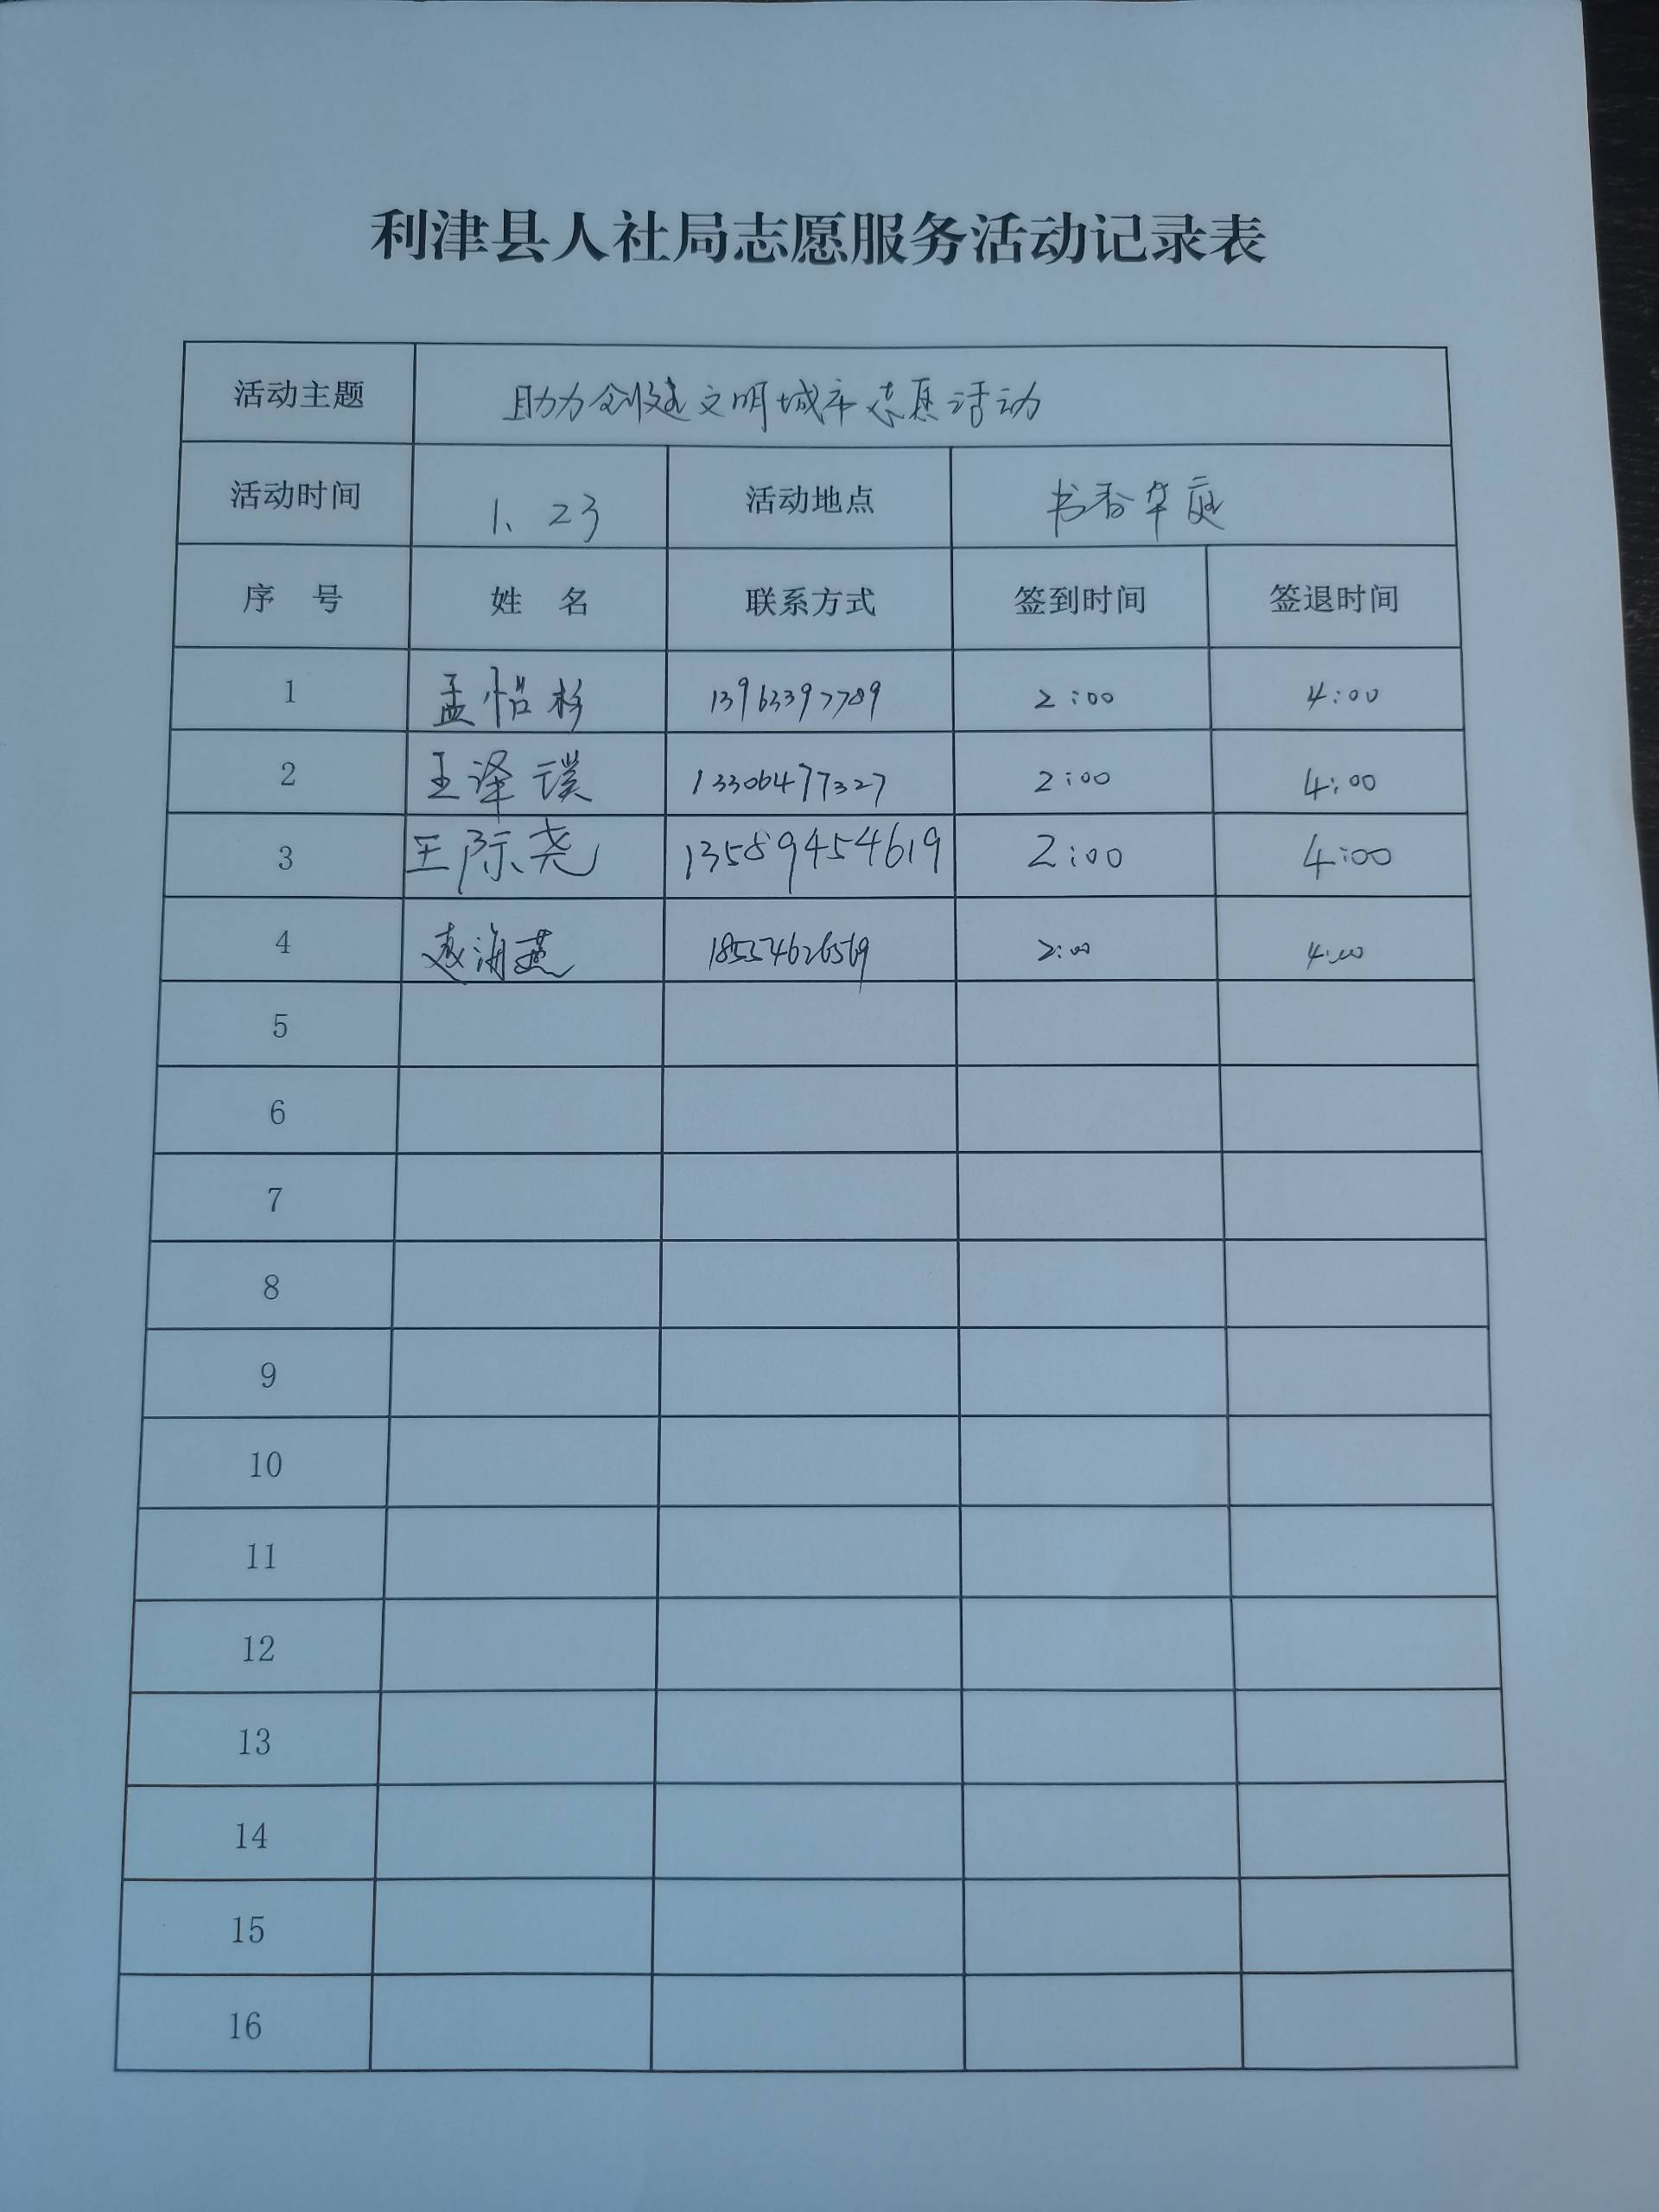 利津县人社局志愿服务活动记录表
活动主题 助力创建文明城市志愿活动
活动时间 1、23 活动地点 书香华庭
序 号 姓 名 联系方式 签到时间 签退时间
1 孟怡杉 13963397789 2:00 4:00
2 王泽璞 13306477327 2:00 4:00
3 王际尧 13589454619 2:00 4:00
4 赵海燕 2:00 4:00
5
6
7
8
9
10
11
12
13
14
15
16